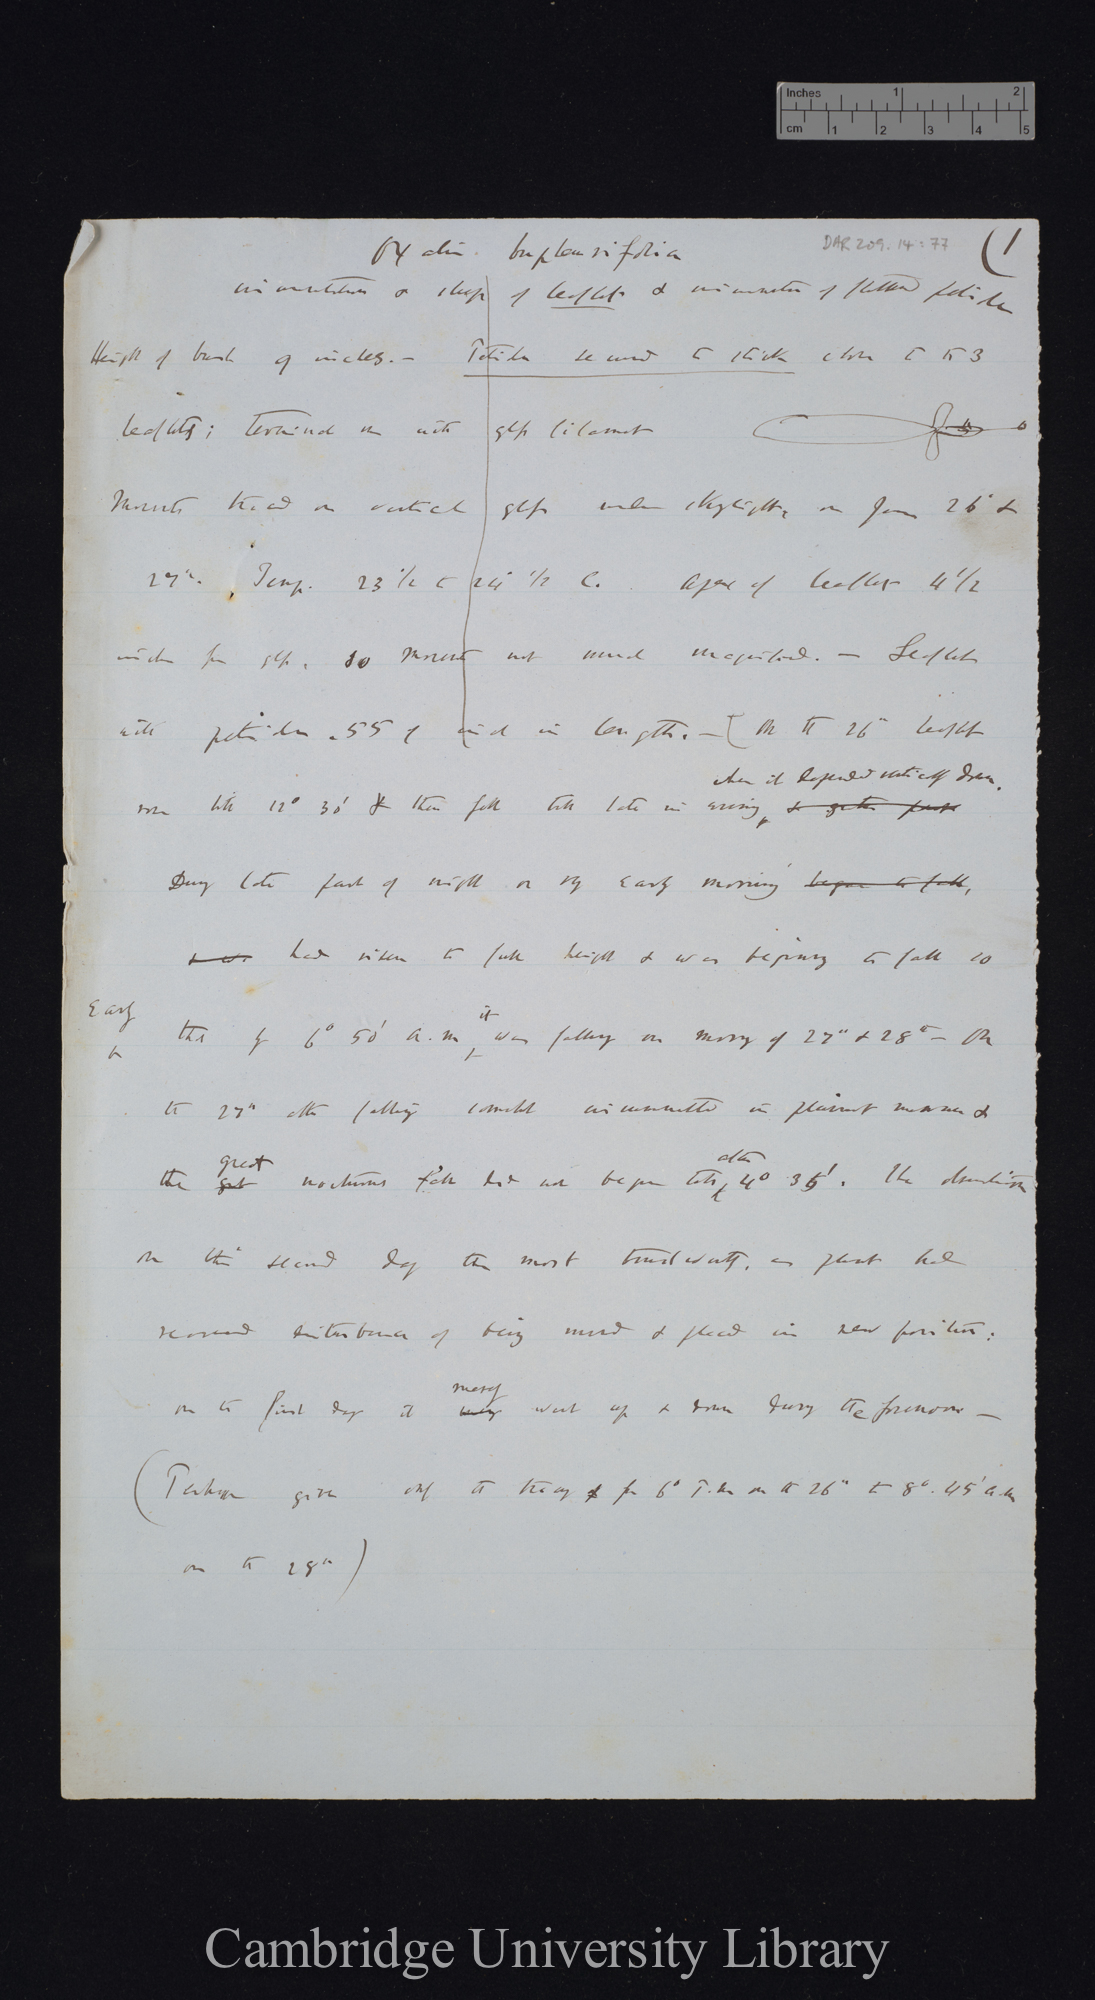 Inches 1 2
cm 1 2 3 4 5
DAR 209.14:77
(1
Oxalis bupleurifolia
circumnutation & sleep of leaflets & circumnutation of petiole
Height of bush 9 inches. — Petiole secured to stick close to the 3
leaflets; terminal one with glass filament
Movements traced on vertical glass under skylight, on June 26 &
27th. Temp. 23 1/2 to 24 1/2 C. apex of leaflet 4 1/2
inches from glass, so movement not much magnified. — Leaflet
with petiole .55 of inch in length. — [On the 26th leaflet
when it depended vertically down.
rose till 12° 30' & then fell till late in evening,
During later part of night or very early morning began to fall,
had risen to full height & was beginning to fall so
Early
that by 6° 50' a.m. it was falling on morning of 27th & 28th — On
the 27th after falling circumnutated in plainest manner &
great
the nocturnal fall did not begin till after 4° 35'. The observations
on this second day the most trustworthy, as plant had
recovered disturbance of being moved & placed in new position:
on the first day it merely went up & down during the forenoon —
(Perhaps give only the tracing from 6° P.m on the 26th to 8°. 45' a.m
on the 28th)
Cambridge University Library